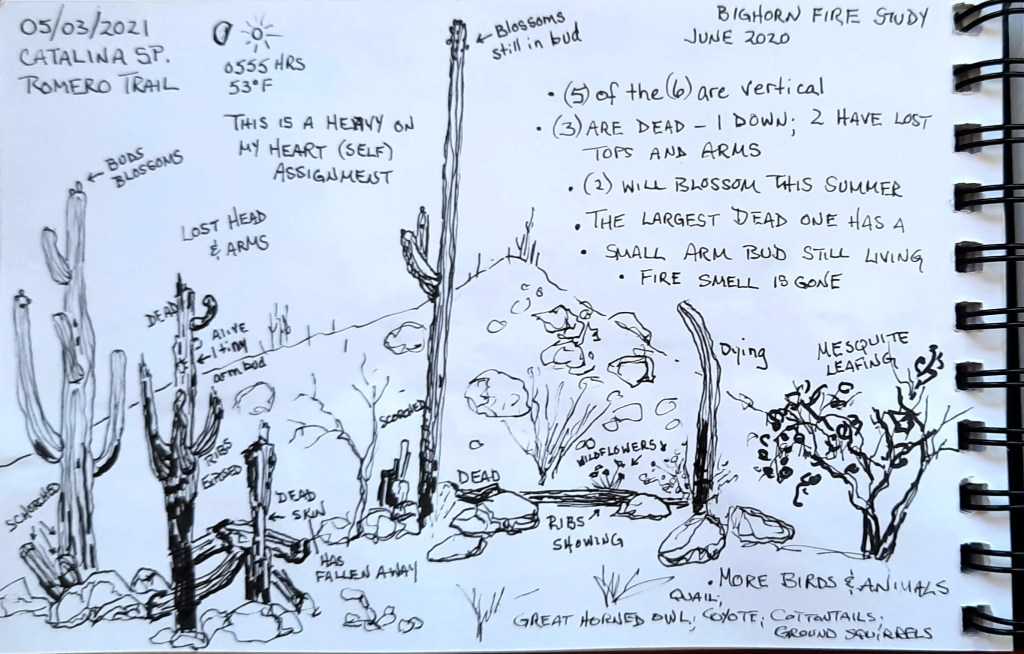 05/03/2021
CATALINA SP.
ROMERO TRAIL
0555 HRS
53°F
THIS IS A HEAVY ON
MY HEART (SELF)
ASSIGNMENT
← BLOSSOMS
still in bud
BIGHORN FIRE STUDY
JUNE 2020
• (5) of the (6) are vertical
• (3) ARE DEAD – 1 DOWN; 2 HAVE LOST
TOPS AND ARMS
• (2) WILL BLOSSOM THIS SUMMER
• THE LARGEST DEAD ONE HAS A
• SMALL ARM BUD STILL LIVING
• FIRE SMELL IS GONE
← BUDS
BLOSSOMS
LOST HEAD
& ARMS
DEAD
ALIVE
← 1 tiny
arm bud
RIBS
EXPOSED
SCORCHED
SCORCHED
DEAD
← SKIN
HAS
FALLEN AWAY
DEAD
RIBS
SHOWING
WILDFLOWERS
Dying
MESQUITE
LEAFING
• MORE BIRDS & ANIMALS
QUAIL,
GREAT HORNED OWL; COYOTE; COTTONTAILS;
GROUND SQUIRRELS